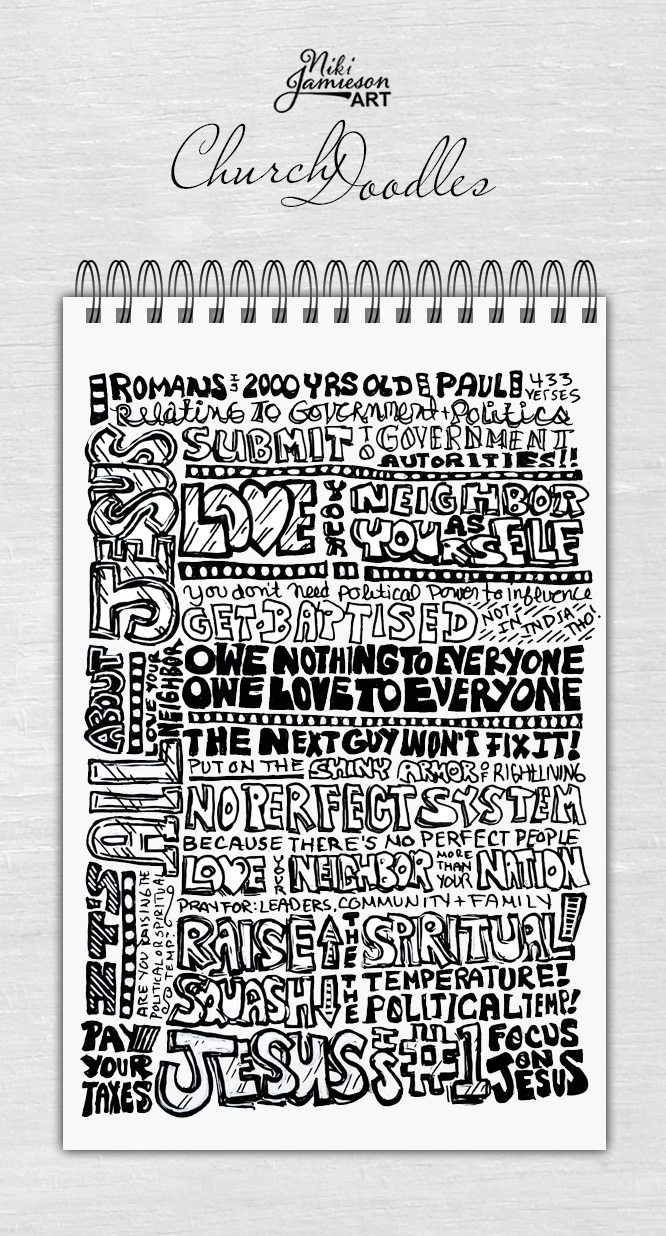 Niki
Jamieson
ART
Church Doodles
ROMANS IS 2000 YRS OLD PAUL 433 VERSES
Relating To Government + Politics
SUBMIT TO GOVERNMENT
AUTORITIES!!
LOVE YOUR NEIGHBOR
AS
YOURSELF
you don't need political power to influence
GET BAPTISED NOT IN INDIA THO!
OWE NOTHING TO EVERYONE
OWE LOVE TO EVERYONE
THE NEXT GUY WON'T FIX IT!
PUT ON THE SHINY ARMOR OF RIGHT LIVING
NO PERFECT SYSTEM
BECAUSE THERE'S NO PERFECT PEOPLE
LOVE YOUR NEIGHBOR MORE THAN YOUR NATION
PRAY FOR: LEADERS, COMMUNITY + FAMILY
RAISE THE SPIRITUAL
TEMPERATURE!
SQUASH THE POLITICAL TEMP!
JESUS IS #1
FOCUS
ON
JESUS
IT'S ALL ABOUT JESUS
LOVE YOUR
NEIGHBOR
ARE YOU RAISING THE
POLITICAL OR SPIRITUAL
TEMP?
PAY
YOUR
TAXES